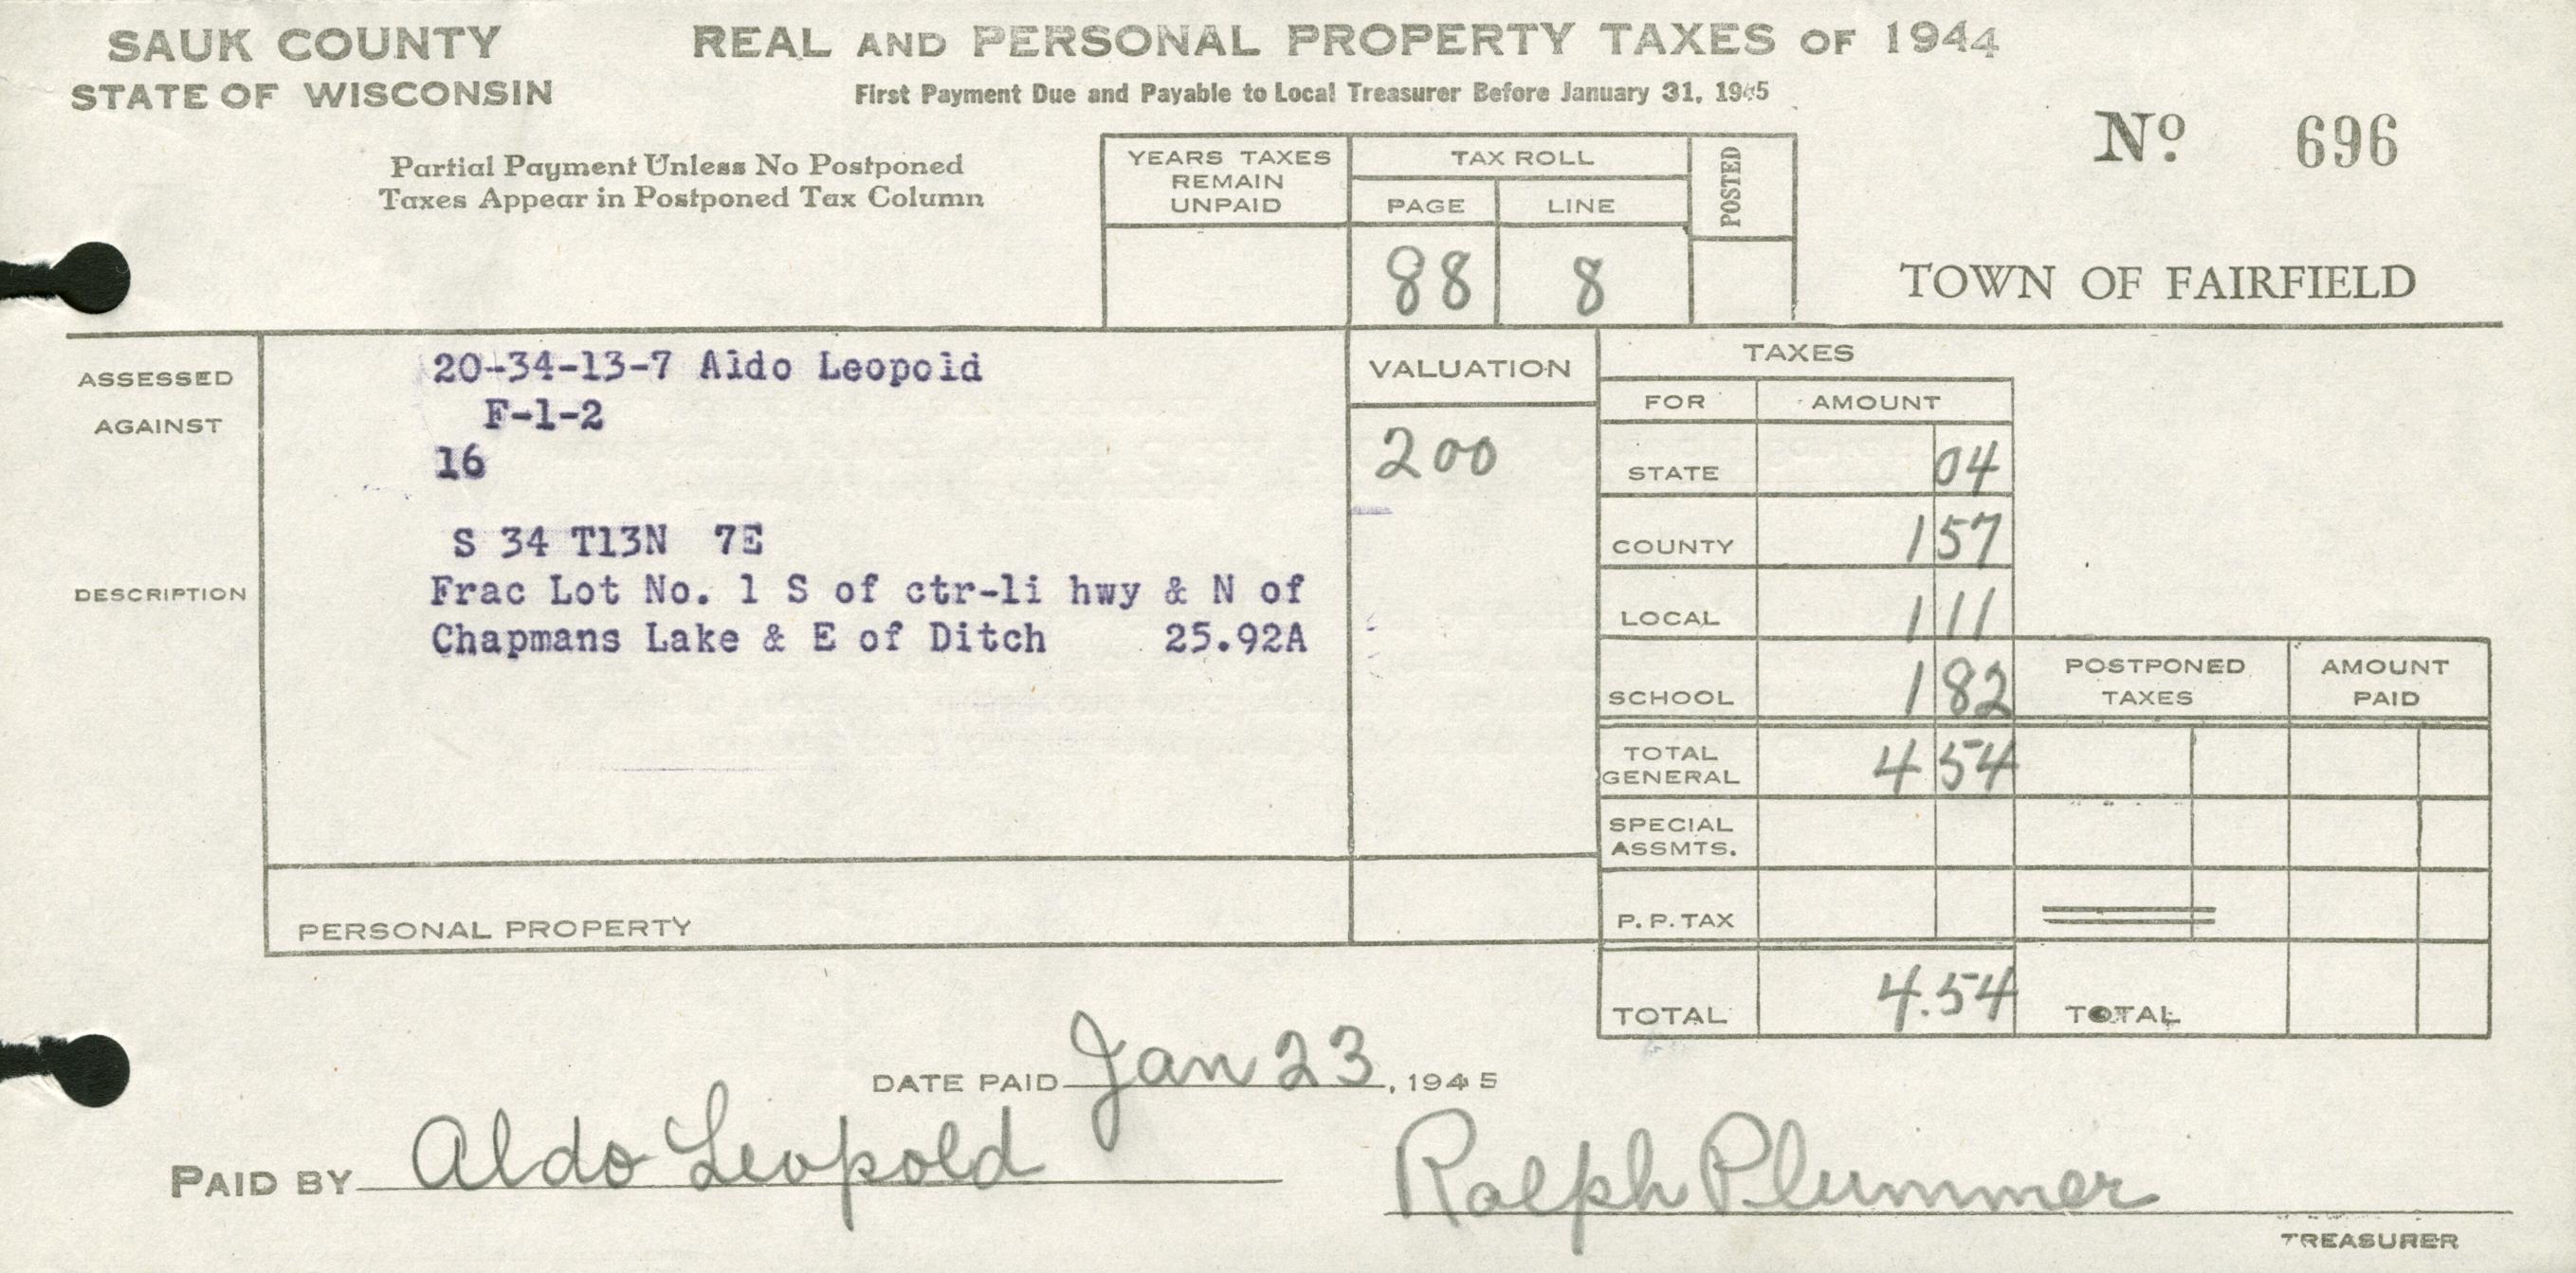 SAUK COUNTY
STATE OF WISCONSIN
REAL AND PERSONAL PROPERTY TAXES OF 1944
First Payment Due and Payable to Local Treasurer Before January 31, 1945
Partial Payment Unless No Postponed
Taxes Appear in Postponed Tax Column
YEARS TAXES
REMAIN
UNPAID
TAX ROLL
PAGE LINE
POSTED
88 8
No 696
TOWN OF FAIRFIELD
ASSESSED
AGAINST
20-34-13-7 Aldo Leopold
F-1-2
16
DESCRIPTION
S 34 T13N 7E
Frac Lot No. 1 S of ctr-li hwy & N of
Chapmans Lake & E of Ditch 25.92A
PERSONAL PROPERTY
VALUATION
200
TAXES
FOR AMOUNT
STATE 04
COUNTY 1 57
LOCAL 1 11
SCHOOL 1 82
POSTPONED
TAXES
AMOUNT
PAID
TOTAL
GENERAL 4 54
SPECIAL
ASSMTS.
P. P. TAX
TOTAL 4.54 TOTAL
DATE PAID Jan 23, 1945
PAID BY Aldo Leopold
Ralph Plummer
TREASURER